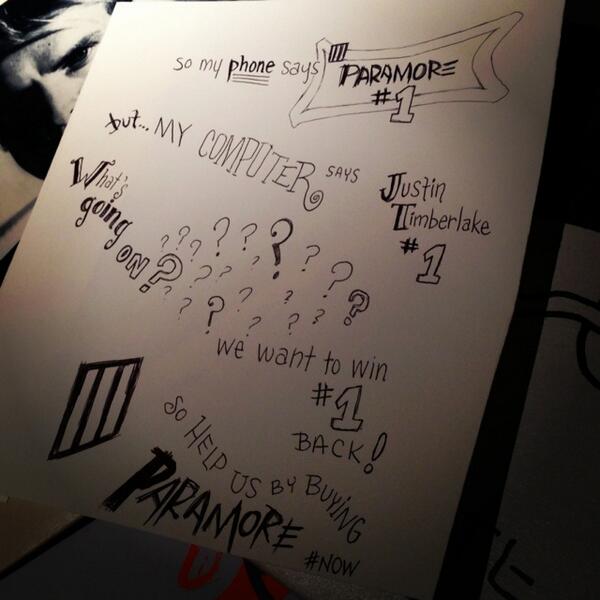 so my phone says
PARAMORE
#1
but... MY COMPUTER SAYS
Justin
Timberlake
#1
What's
going
on?
? ? ? ? ? ? ? ? ? ? ? ? ? ? ? ? ? ? ? ?
we want to win
#1
BACK!
So HELP US BY BUYING
PARAMORE
#NOW